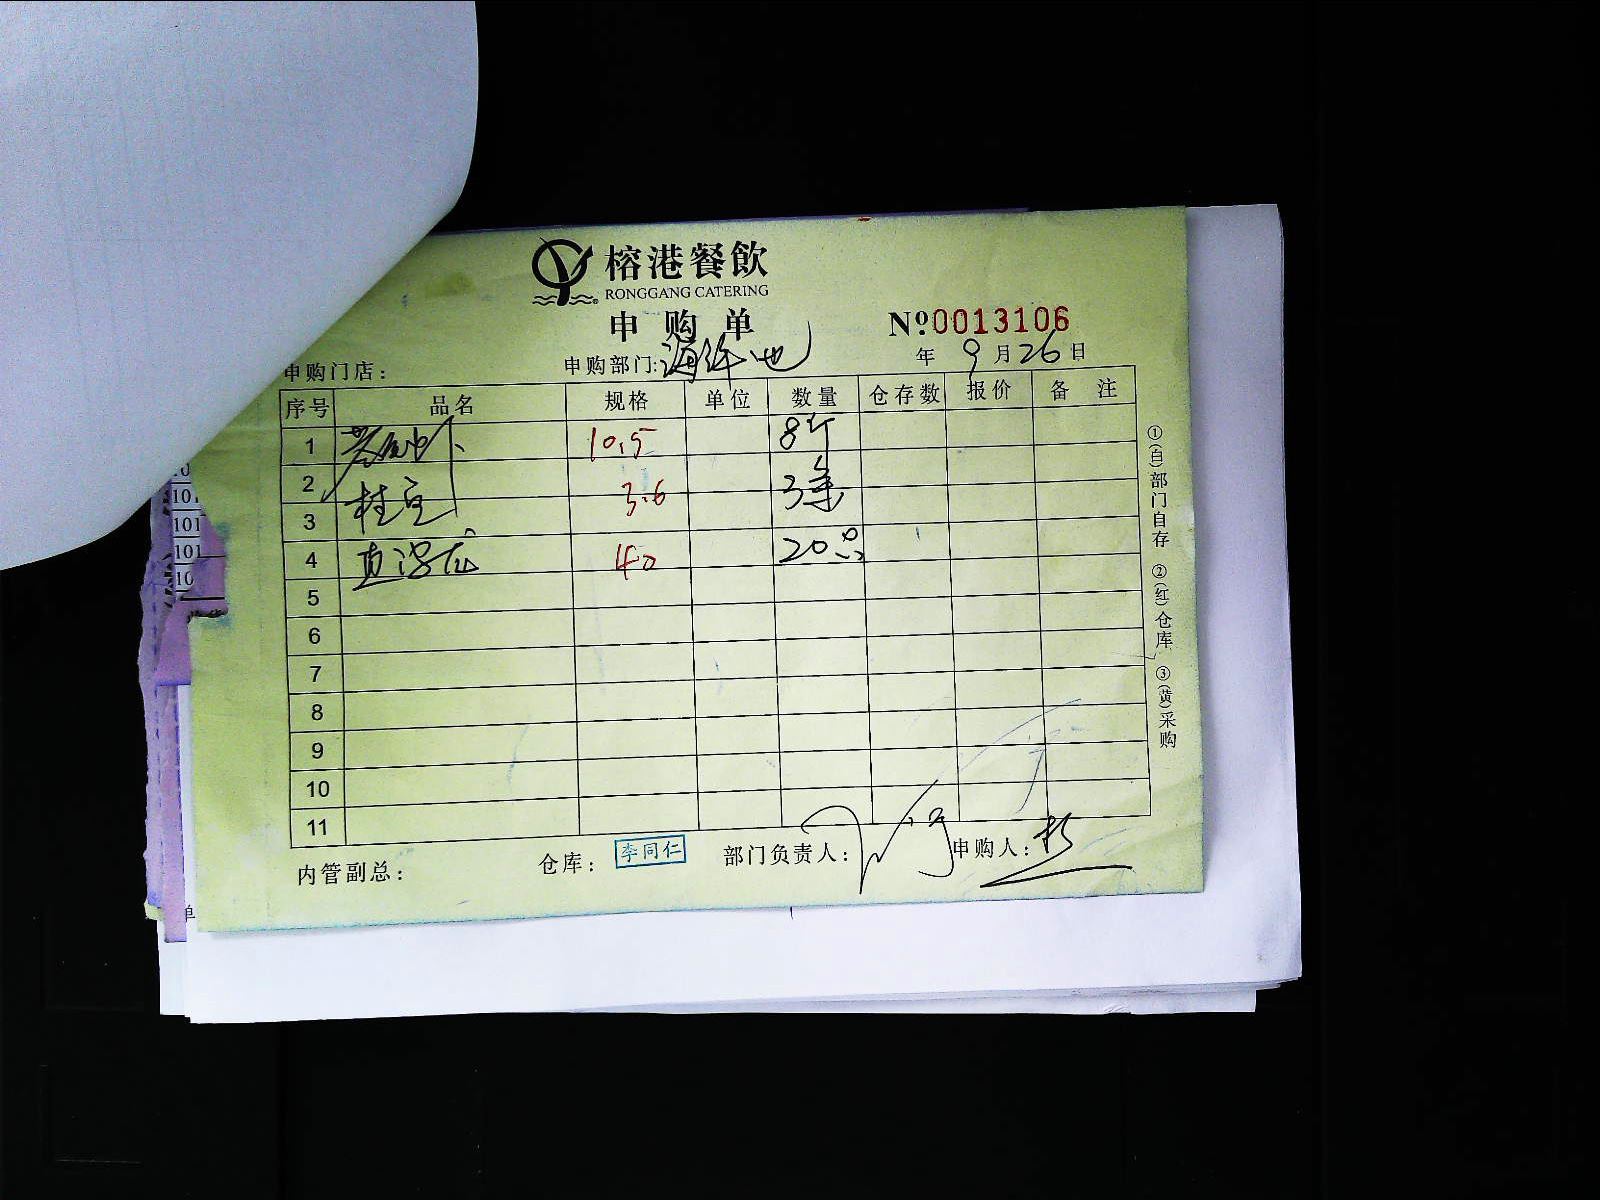 榕港餐飲
RONGGANG CATERING
申购单
Nº0013106
申购门店： 申购部门:海鲜池 年 9月26日
序号 品名 规格 单位 数量 仓存数 报价 备注
1 10.5 8斤
2 桂鱼 3.6 3条
3
4 40 20只
5
6
7
8
9
10
11
内管副总： 仓库： 李同仁 部门负责人： 申购人：
①(白)部门自存 ②(红)仓库 ③(黄)采购
10
101
101
101
10
单